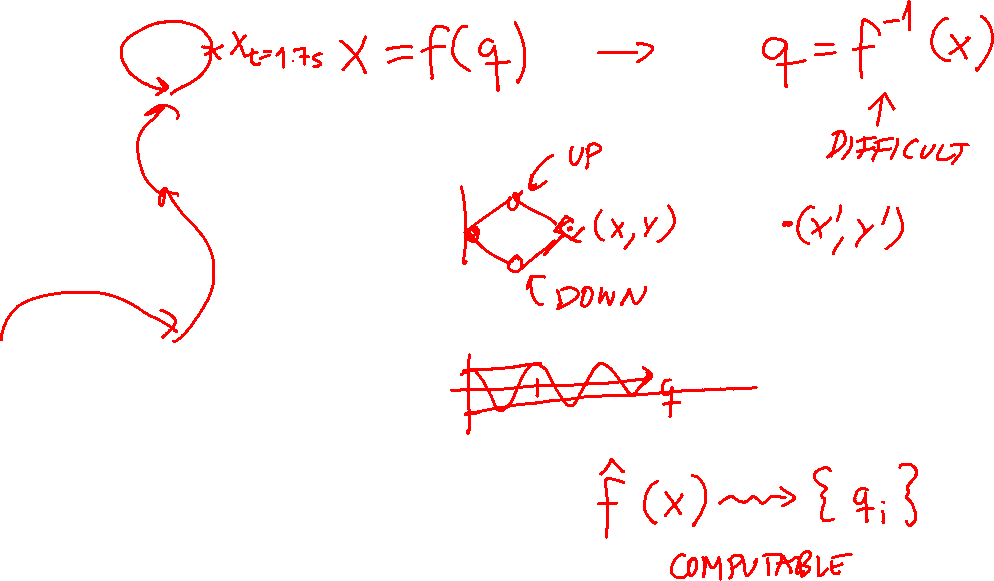 x_{t=1.7s} X = f(q) → q = f^{-1}(x)
↑
DIFFICULT
UP
(X, Y) •(X', Y')
DOWN
q
f̂(x) ⇝ {q_i}
COMPUTABLE